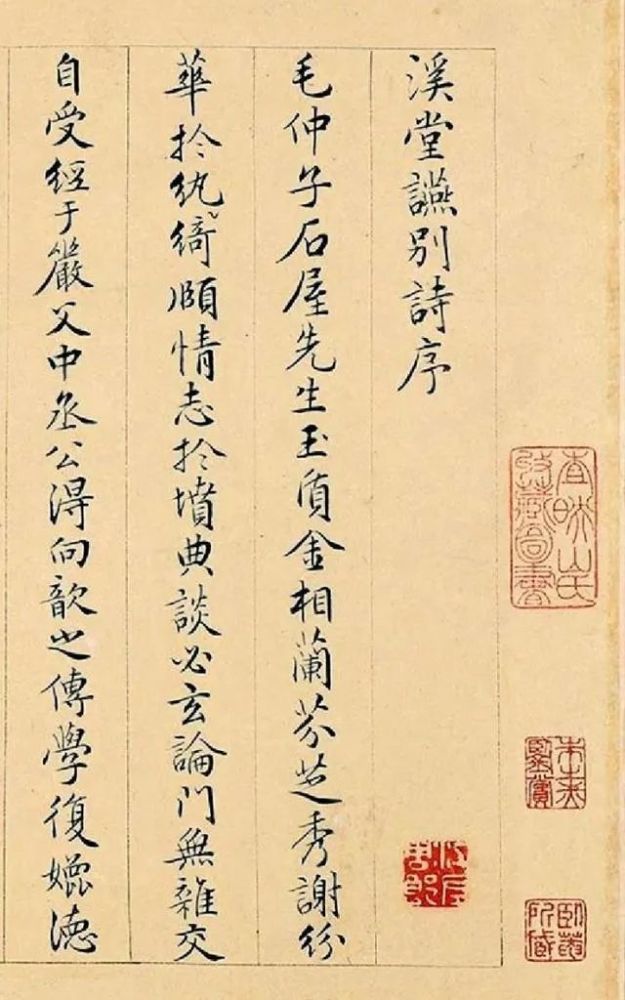 溪堂讌別詩序
毛仲子石屋先生玉質金相蘭芬芝秀謝紛
華扵紈綺頤情志扵墳典談必玄論門無雜交
自受經于嚴父中丞公得向歆之傳學復孅徳